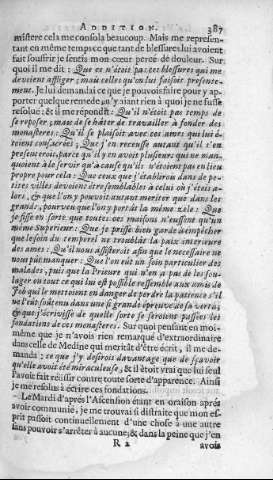 ADDITION. 387
mistere cela me consola beaucoup. Mais me represen-
tant en même temps ce que tant de blessures lui avoient
fait souffrir je sentis mon cœur percé de douleur. Sur
quoi il me dit : Que ce n'étoit pas ces blessures qui me
devoient affliger ; mais celles qu'on lui faisoit presente-
ment. Je lui demandai ce que je pouvois faire pour y ap-
porter quelque remede, n'y aiant rien à quoi je ne fusse
resolue ; & il me répondit : Qu'il n'étoit pas temps de
se reposer, mais de se hâter de travailler à fonder des
monasteres : Qu'il se plaisoit avec ces ames qui lui é-
toient consacrées ; Que j'en receusse autant qu'il s'en
presenteroit, parce qu'il y en avoit plusieurs qui ne man-
quoient à le servir qu'à cause qu'ils n'étoient pas en lieu
propre pour cela : Que ceux que j'établirois dans de pe-
tites villes devoient être semblables à celui où j'étois a-
lors, & que l'on y pouvoit autant meriter que dans les
grands, pourveu que l'on y portât la même zele : Que
je fisse en sorte que toutes ces maisons n'eussent qu'un
même Superieur : Que je prisse bien garde à empêcher
que le soin du temporel ne troublât la paix interieure
des ames : Qu'il nous assisteroit afin que le necessaire ne
nous pût manquer : Que l'on eût un soin particulier des
malades, puis que la Prieure qui n'en a pas de les sou-
lager en tout ce qui lui est possible ressemble aux amis de
Job qui le mettoient en danger de perdre la patience s'il
ne l'eût soûtenu dans une si grande épreuve de sa vertu ;
& que j'écrivisse de quelle sorte se seroient passées les
fondations de ces monasteres. Sur quoi pensant en moi-
même que je n'avois rien remarqué d'extraordinaire
dans celle de Medine qui meritât d'être écrit, il me de-
manda : ce que j'y desirois davantage que de sçavoir
qu'elle avoit été miraculeuse, & il étoit vrai que lui seul
l'avoit fait réüssir contre toute sorte d'apparence. Ainsi
je me resolus à écrire ces fondations.
Le Mardi d'après l'Ascension étant en oraison après
avoir communié, je me trouvai si distraite que mon es-
prit passoit continuellement d'une chose à une autre
sans pouvoir s'arrêter à aucune ; & dans la peine que j'en
R 2 avois